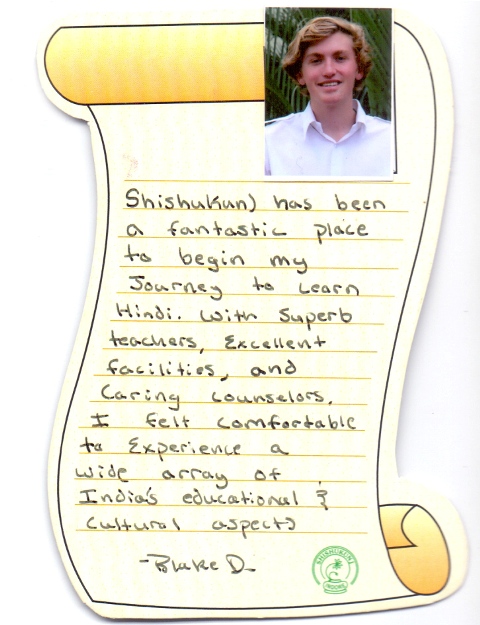 Shishukunj has been
a fantastic place
to begin my
Journey to Learn
Hindi. With Superb
teachers, Excellent
facilities, and
Caring counselors.
I felt comfortable
to Experience a
wide array of
India's educational &
Cultural aspects
-Blake D-
SHISHUKUNJ
INDORE